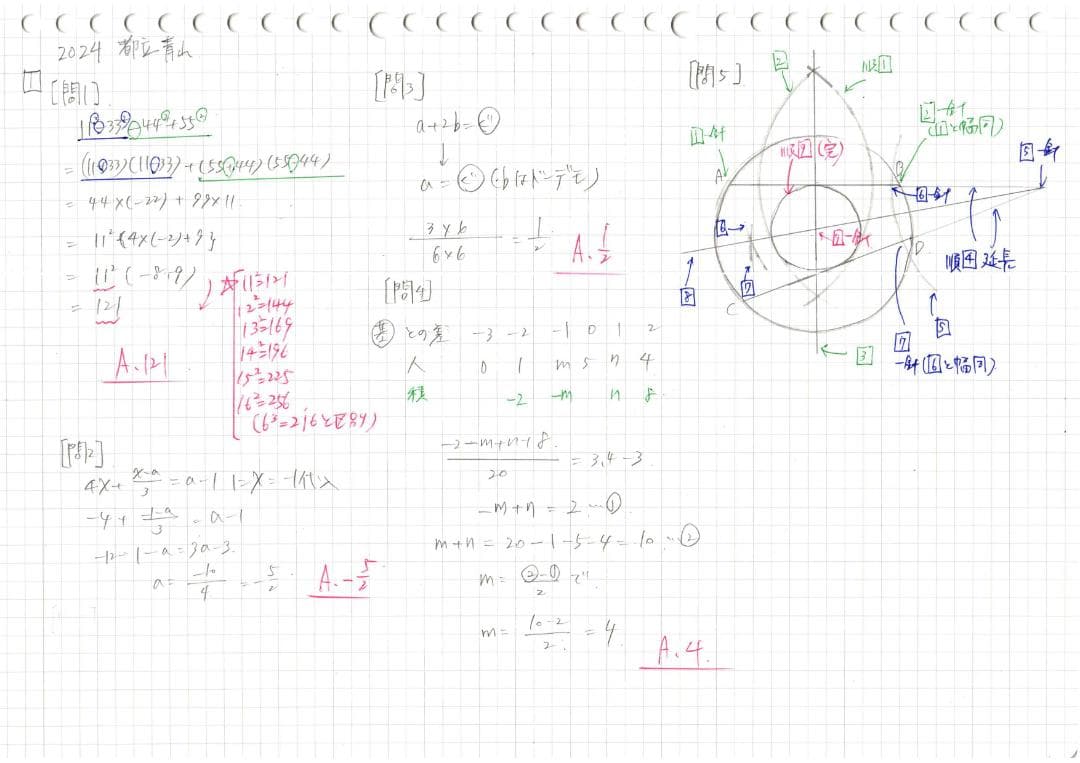 2024 都立青山
1
[問1]
11²-33²-44²+55²
= (11+33)(11-33)+(55+44)(55-44)
= 44×(-22)+99×11
= 11²{4×(-2)+9}
= 11²(-8+9)
= 121
A. 121
☆ 11²=121
12²=144
13²=169
14²=196
15²=225
16²=256
(6³=216と区別)
[問2]
4x+(x-a)/3=a-1にx=-1代入
-4+(-1-a)/3=a-1
-12-1-a=3a-3
a=-10/4=-5/2
A. -5/2
[問3]
a+2b=グ
↓
a=グ(bはドーデモ)
3×6/6×6=1/2
A. 1/2
[問4]
基との差 -3 -2 -1 0 1 2
人 0 1 m 5 n 4
積 -2 -m n 8
(-2-m+n+8)/20=3.4-3
-m+n=2…①
m+n=20-1-5-4=10…②
m=(②-①)/2で
m=(10-2)/2=4
A. 4
[問5]
2
順1
1-針
順9(完)
2-針
(1と幅同)
5-針
A
B
6-針
6
D
順4延長
8
7
C
3
5
7
-針(6と幅同)